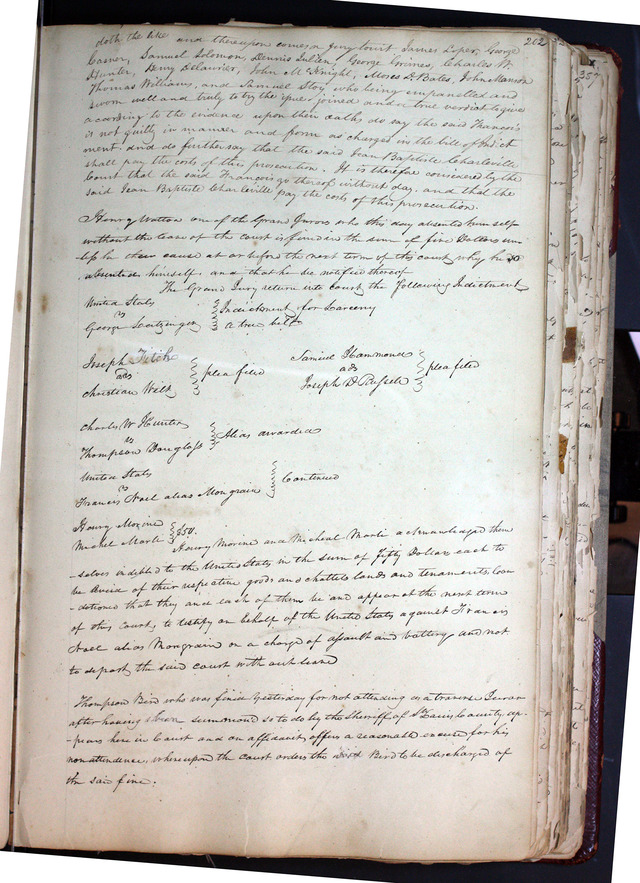 202
doth the like and thereupon comes a jury to wit James Loper, George
Casner, Samuel Solomon, Dennis Julien, George Grimes, Charles W.
Hunter, Henry Delaurier, John McKnight, Moses D. Bates, John Manson
Thomas Williams, and Samuel Stoy who being empanelled and
sworn well and truly to try the issue joined and a true verdict to give
according to the evidence upon their oaths do say the said Francois
is not guilty in manner and form as charged in the bill of Indict
ment. and do further say that the said Jean Baptiste Charleville
shall pay the costs of this prosecution. It is therefore considered by the
Court that the said Francois go thereof without day, and that the
said Jean Baptiste Charleville pay the costs of this prosecution.
Henry Watton one of the Grand Jurors who this day absented himself
without the leave of the court is fined in the sum of five Dollars un-
less he shew cause at or before the next term of this court why he so
absented himself. and that he be notified thereof
The Grand Jury return into court the following Indictment
United States
vs
George Scitzinger
Indictment for Larceny
A true bill
Joseph Fitch
ads
Christian Wilt
plea filed
Samuel Hammond
ads
Joseph D Russell
plea filed
Charles W Hunter
vs
Thompson Douglass
Alias awarded
United States
vs
Francis Noel alias Mongrain
Continued
Henry Morine
Michel Marli
$50.
Henry Morine and Micheal Marli acknowledged them
-selves indebted to the United States in the sum of Fifty Dollars each to
be levied of their respective goods and chattels lands and tenaments, Con
-ditioned that they and each of them be and appear at the next term
of this Court, to testify on behalf of the United States against Francis
Noel alias Mongrain on a charge of assault and battery and not
to depart the said court without leave
Thompson Bird who was fined yesterday for not attending as a traverse Juror
after having been summoned so to do by the Sheriff of St Louis County, ap-
-pears here in Court and on affidavit, offers a reasonable excuse for his
non attendence, whereupon the court orders the said Bird to be discharged of
the said fine.